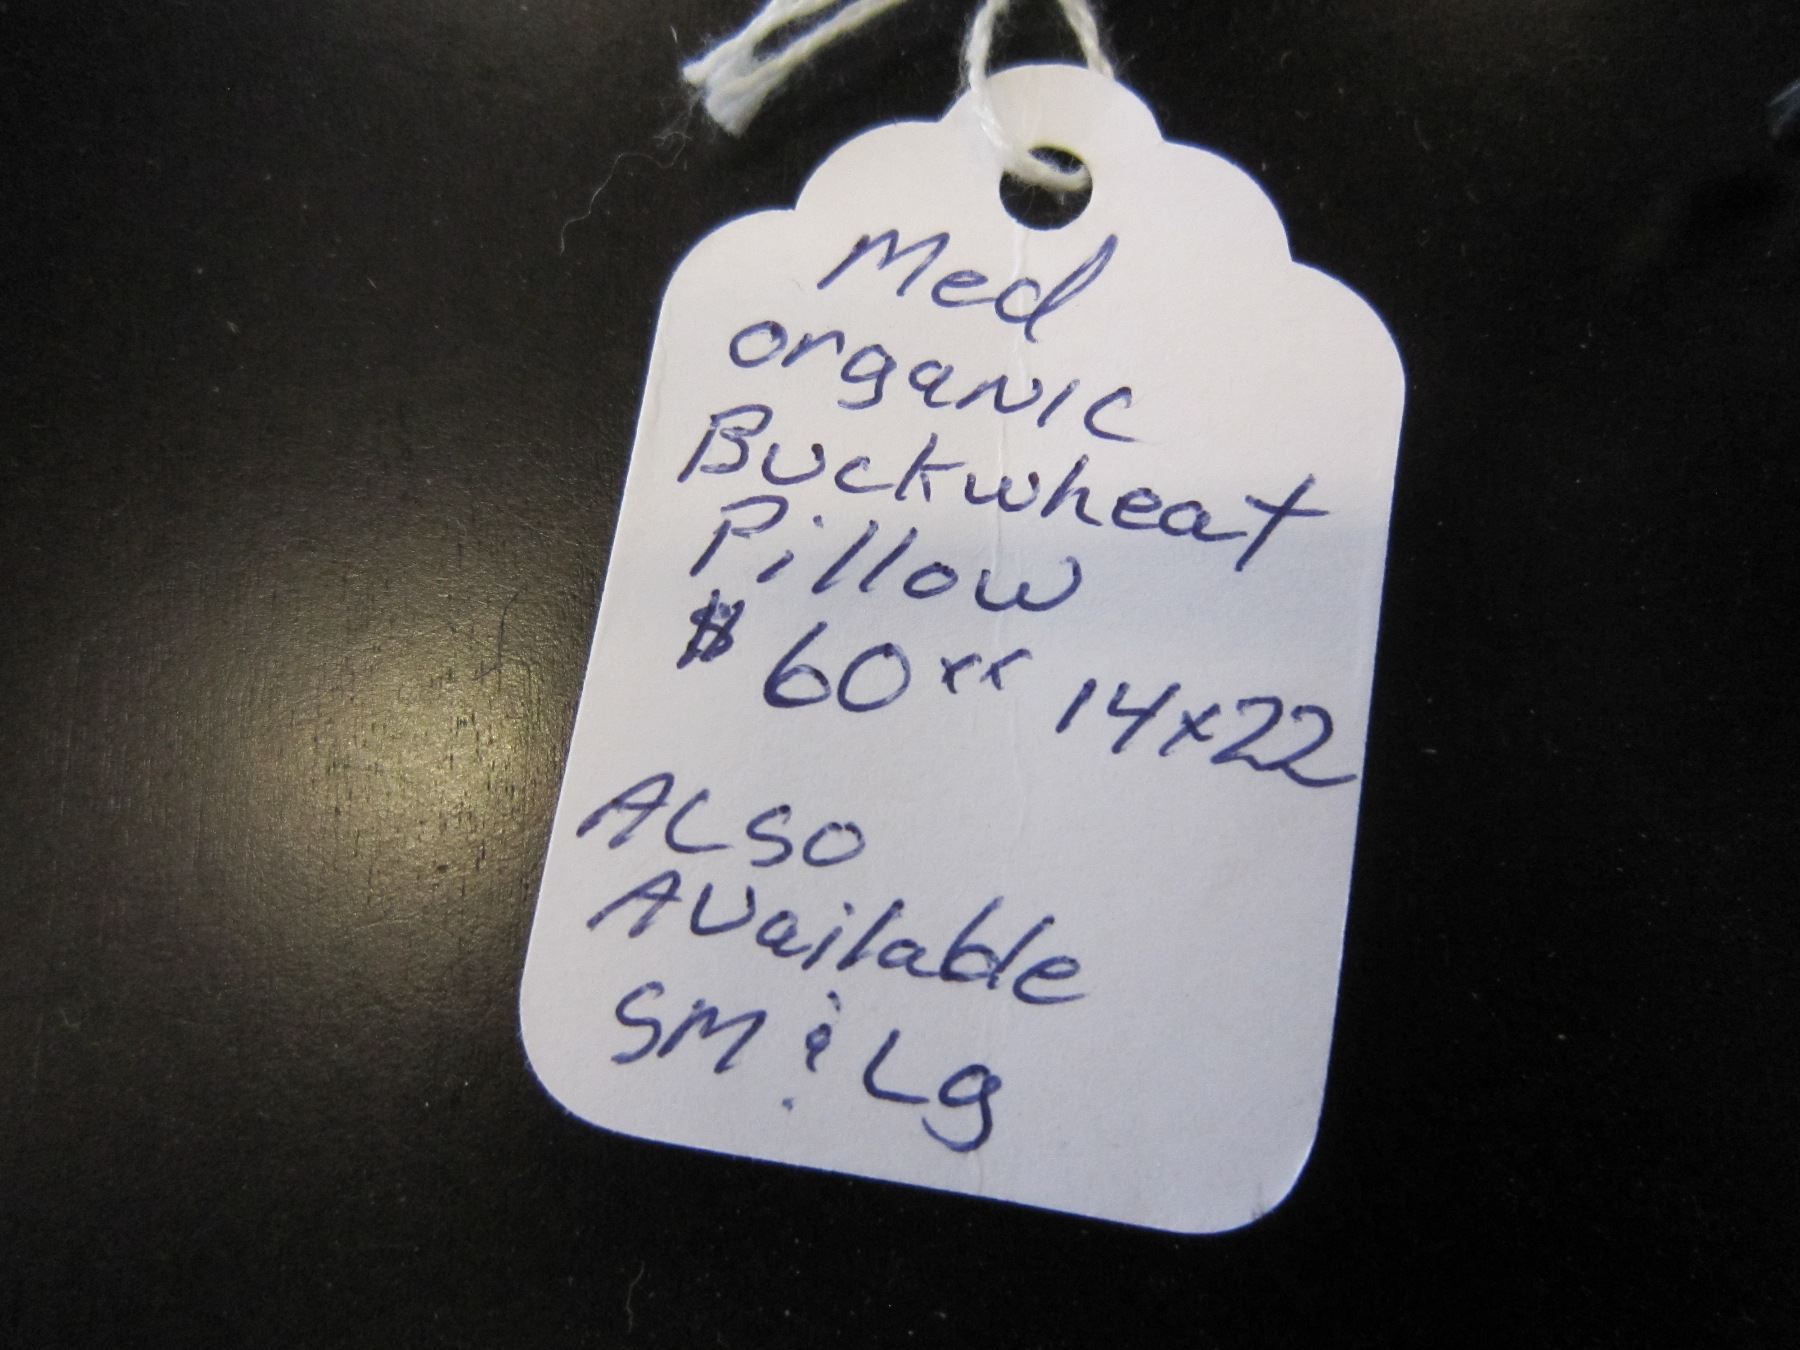 Med
organic
Buckwheat
Pillow
$60xx 14x22
ALSO
Available
SM & Lg